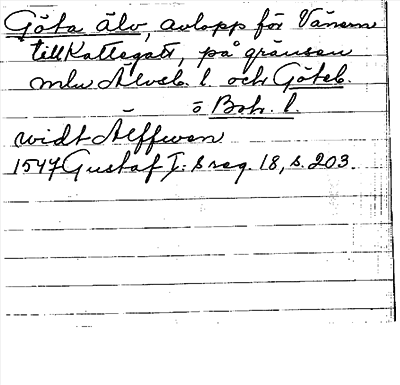 Göta älv, avlopp för Vänern
till Kattegatt, på gränsen
mlm Älvsb. l. och Göteb.
o Boh. l.
widt Älffwen
1547 Gustaf I:s reg. 18, s. 203.